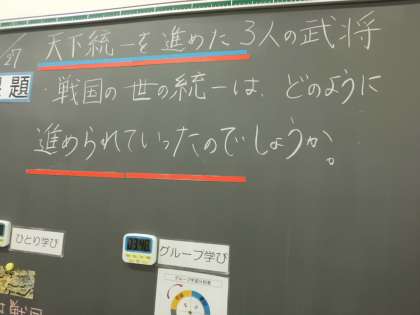 天下統一を進めた3人の武将
題
・戦国の世の統一は、どのように
進められていったのでしょうか。
ひとり学び
グループ学び